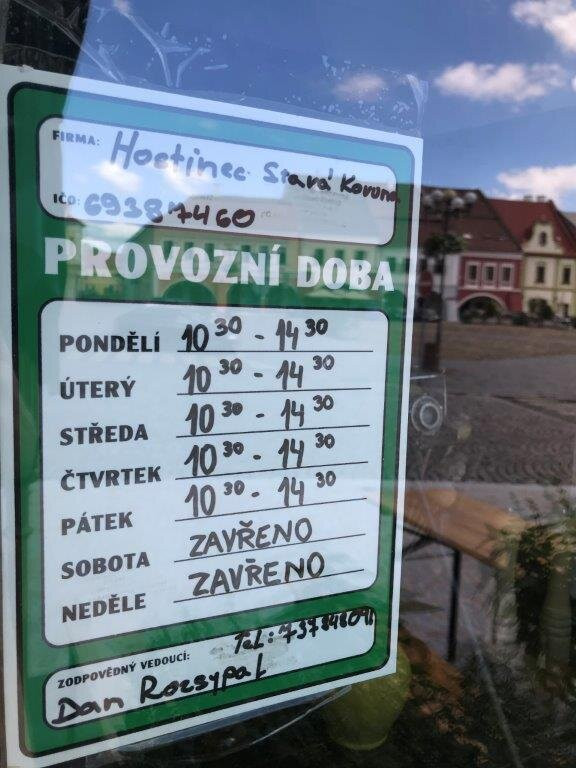 FIRMA: Hostinec Stará Koruna
IČO: 69387460
PROVOZNÍ DOBA
PONDĚLÍ 10 30 - 14 30
ÚTERÝ 10 30 - 14 30
STŘEDA 10 30 - 14 30
ČTVRTEK 10 30 - 14 30
PÁTEK 10 30 - 14 30
SOBOTA ZAVŘENO
NEDĚLE ZAVŘENO
Tel:
ZODPOVĚDNÝ VEDOUCÍ:
Dan Rozsypal